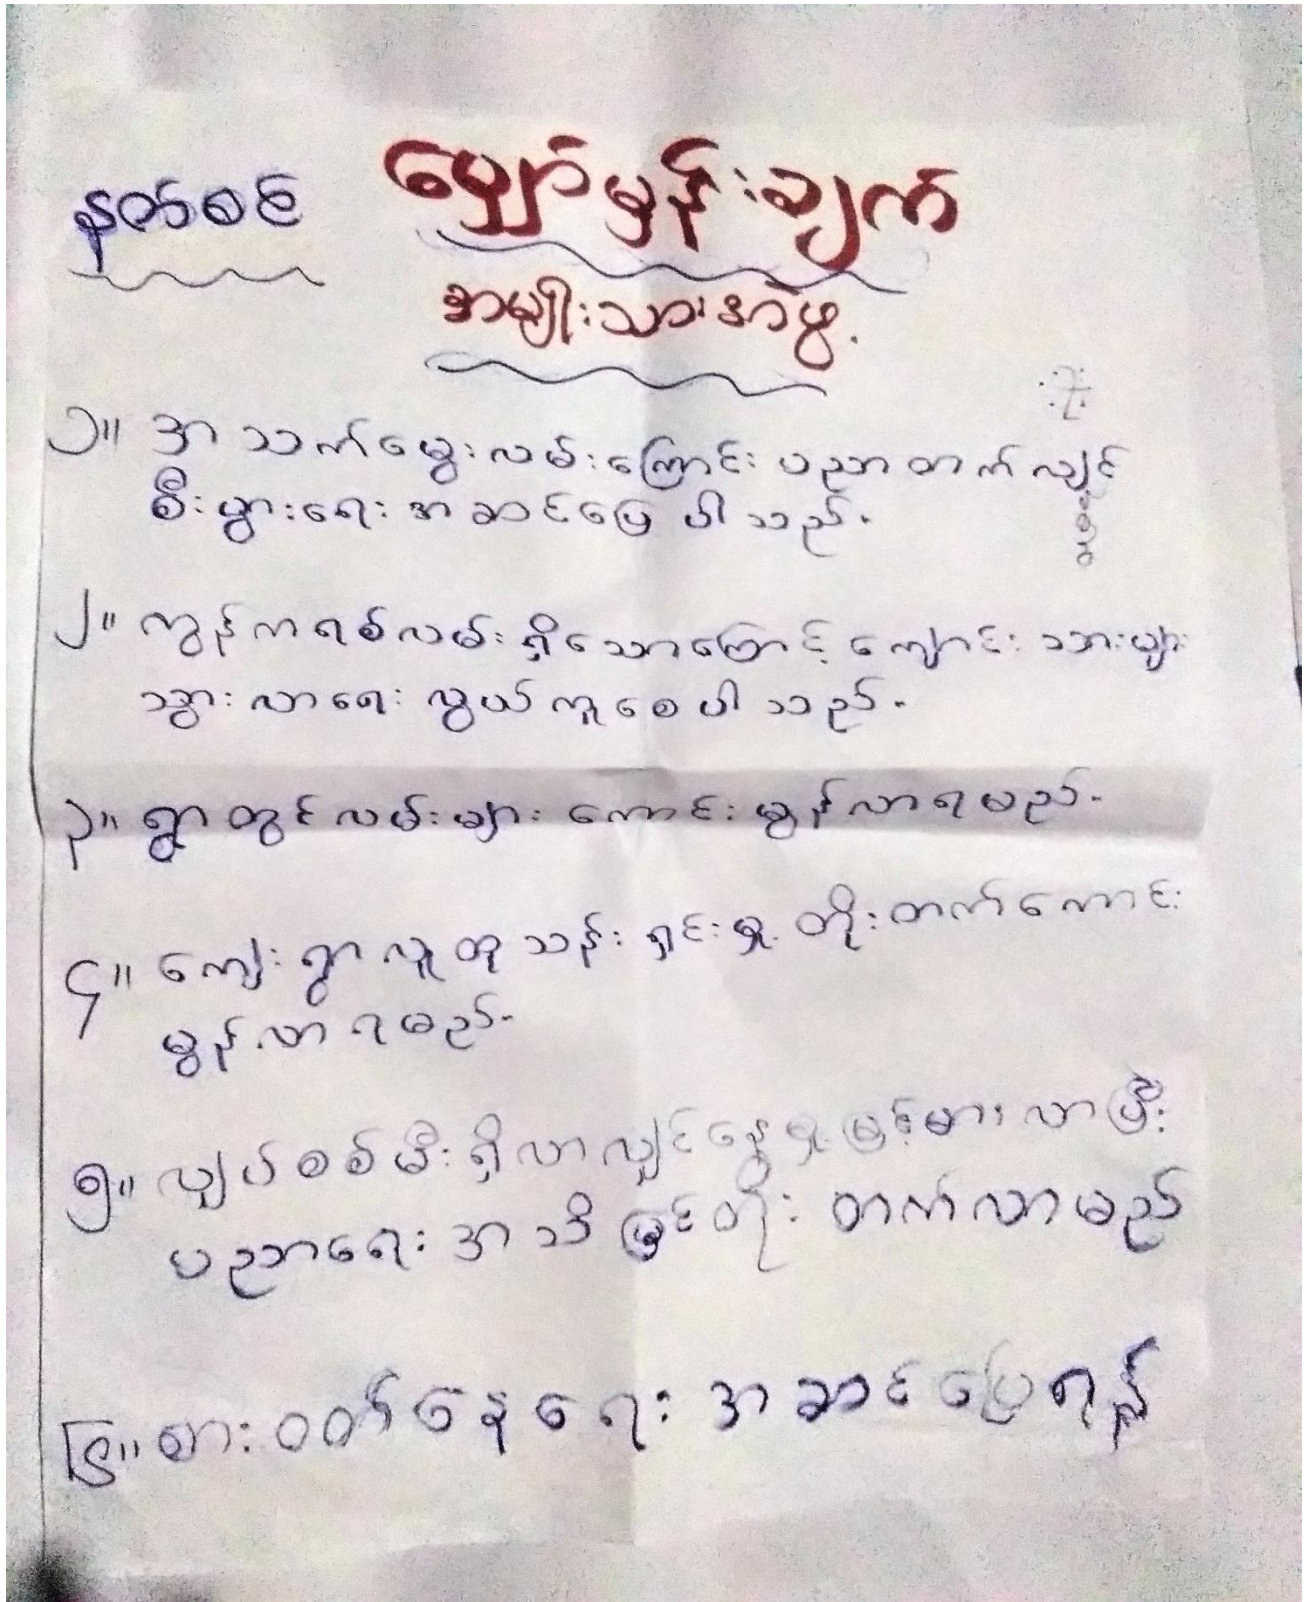 နတ်စင် မျှော်မှန်းချက်
အမျိုးသားအဖွဲ့.
၁။ အသက်မွေးလမ်းကြောင်း ပညာတတ်လျှင်
စီးပွားရေး အဆင်ပြေပါသည်.
၂။ ကွန်ကရစ်လမ်းရှိသောကြောင့် ကျောင်းသားများ
သွားလာရေး လွယ်ကူစေပါသည်.
၃။ ရွာတွင်လမ်းများ ကောင်းမွန်လာရမည်.
၄။ ကျေးရွာလူထု သန့်ရှင်းမှု. တိုးတက်ကောင်း
မွန်လာရမည်.
၅။ လျှပ်စစ်မီးရှိလာလျှင် မြင့်မားလာပြီး
ပညာရေးအသိမြင်တိုးတက်လာမည်
၆။ စားဝတ်နေရေး အဆင်ပြေရန်